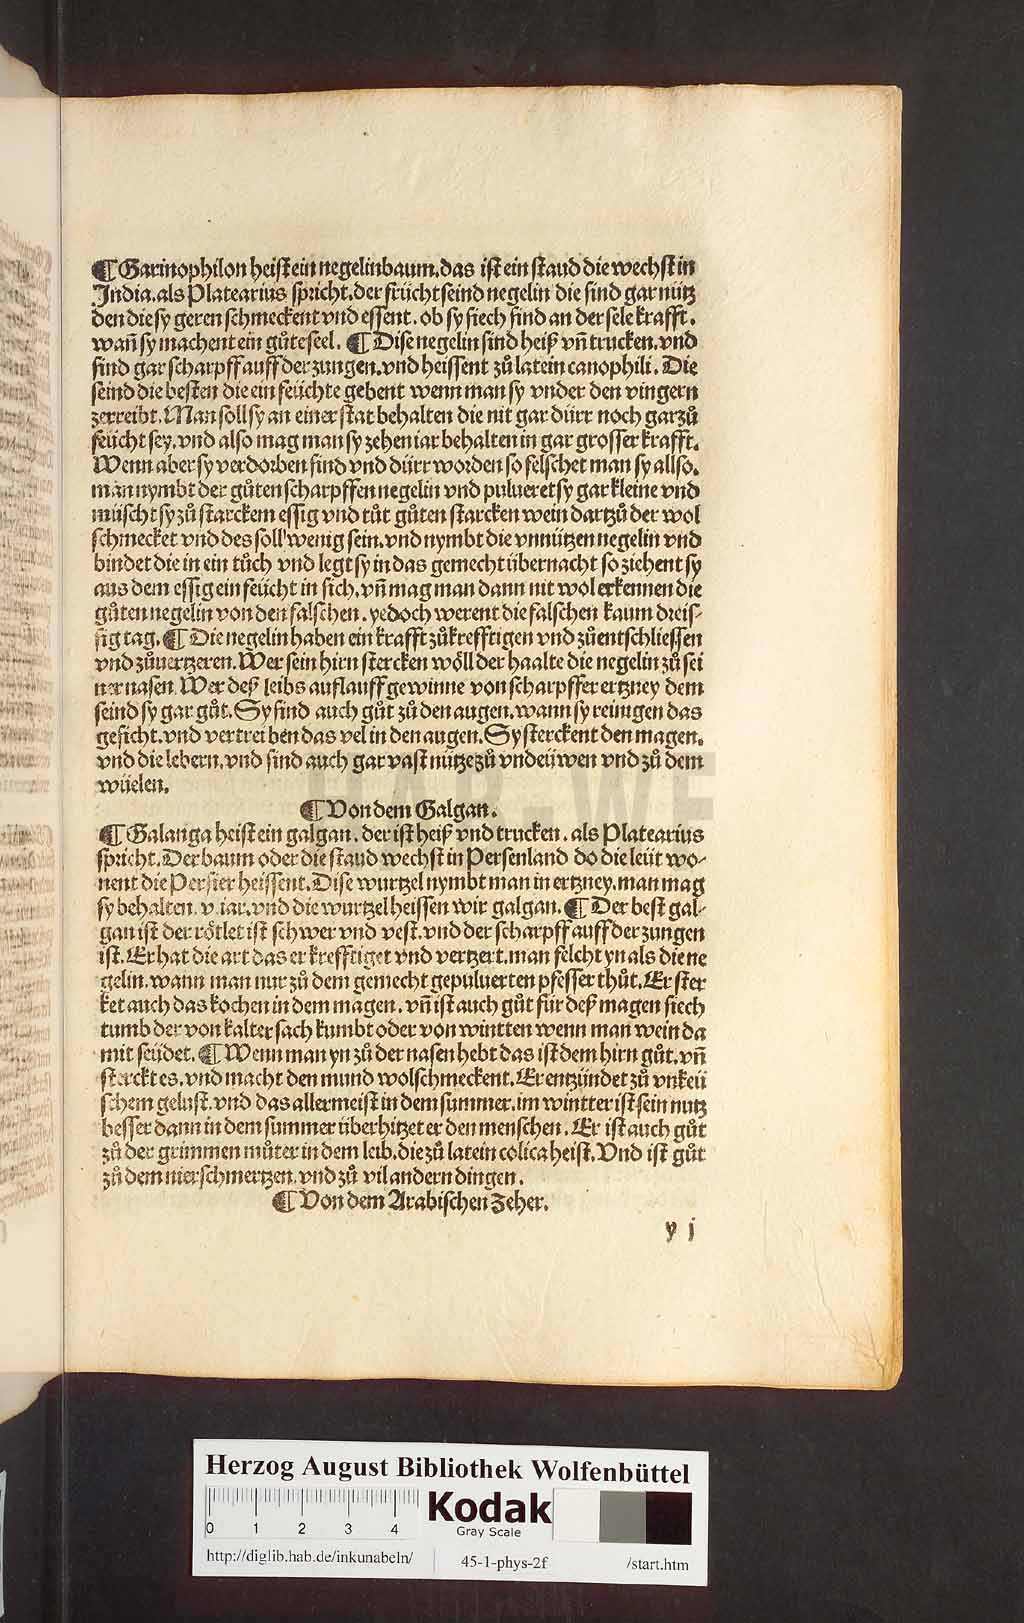 ¶ Garinophilon heist ein negelinbaum. das ist ein staud die wechst in
India. als Platearius spricht. der frücht seind negelin die sind gar nütz
den die sy geren schmeckent vnd essent. ob sy siech sind an der sele krafft.
wañ sy machent ein gůte seel. ¶ Dise negelin sind heiß vñ trucken. vnd
sind gar scharpff auff der zungen. vnd heissent zů latein canophili. Die
seind die besten die ein feüchte gebent wenn man sy vnder den vingern
zerreibt. Man soll sy an einer stat behalten die nit gar dürr noch gar zů
feücht sey. vnd also mag man sy zehen iar behalten in gar grosser krafft.
Wenn aber sy verdorben sind vnd dürr worden so felschet man sy allso.
man nymbt der gůten scharpffen negelin vnd pulueret sy gar kleine vnd
müscht sy zů starckem essig vnd tůt gůten starcken wein dartzů der wol
schmecket vnd des soll wenig sein. vnd nymbt die vnnützen negelin vnd
bindet die in ein tůch vnd legt sy in das gemecht übernacht so ziehent sy
aus dem essig ein feücht in sich. vñ mag man dann nit wol erkennen die
gůten negelin von den falschen. yedoch werent die falschen kaum dreis-
sig tag. ¶ Die negelin haben ein krafft zů krefftigen vnd zů entschliessen
vnd zů uertzeren. Wer sein hirn stercken wöll der haalte die negelin zů sei
ner nasen. Wer deß leibs auflauff gewinne von scharpffer ertzney dem
seind sy gar gůt. Sy sind auch gůt zů den augen. wann sy reinigen das
gesicht. vnd vertrei ben das vel in den augen. Sy sterckent den magen.
vnd die lebern. vnd sind auch gar vast nütze zů vndeüwen vnd zů dem
wüelen.
¶ Von dem Galgan.
¶ Galanga heist ein galgan. der ist heiß vnd trucken. als Platearius
spricht. Der baum oder die staud wechst in Persenland do die leüt wo-
nent die Persier heissent. Dise wurtzel nymbt man in ertzney. man mag
sy behalten. v. iar. vnd die wurtzel heissen wir galgan. ¶ Der best gal-
gan ist der rötlet ist schwer vnd vest. vnd der scharpff auff der zungen
ist. Er hat die art das er krefftiget vnd vertzert. man felcht yn als die ne
gelin. wann man nur zů dem gemecht gepuluerten pfeffer thůt. Er ster
ket auch das kochen in dem magen. vñ ist auch gůt für deß magen siech
tumb der von kalter sach kumbt oder von wintten wenn man wein da
mit seüdet. ¶ Wenn man yn zů der nasen hebt das ist dem hirn gůt. vñ
sterckt es. vnd macht den mund wolschmeckent. Er entzündet zů vnkeü
schem gelust. vnd das allermeist in dem summer. im wintter ist sein nutz
besser dann in dem summer überhitzet er den menschen. Er ist auch gůt
zů der grimmen můter in dem leib. die zů latein colica heist. Vnd ist gůt
zů dem nierschmertzen. vnd zů vil andern dingen.
¶ Von dem Arabischen Zeher.
y j
HAB-WF
Herzog August Bibliothek Wolfenbüttel
0 1 2 3 4
Kodak
Gray Scale
http://diglib.hab.de/inkunabeln/ 45-1-phys-2f /start.htm